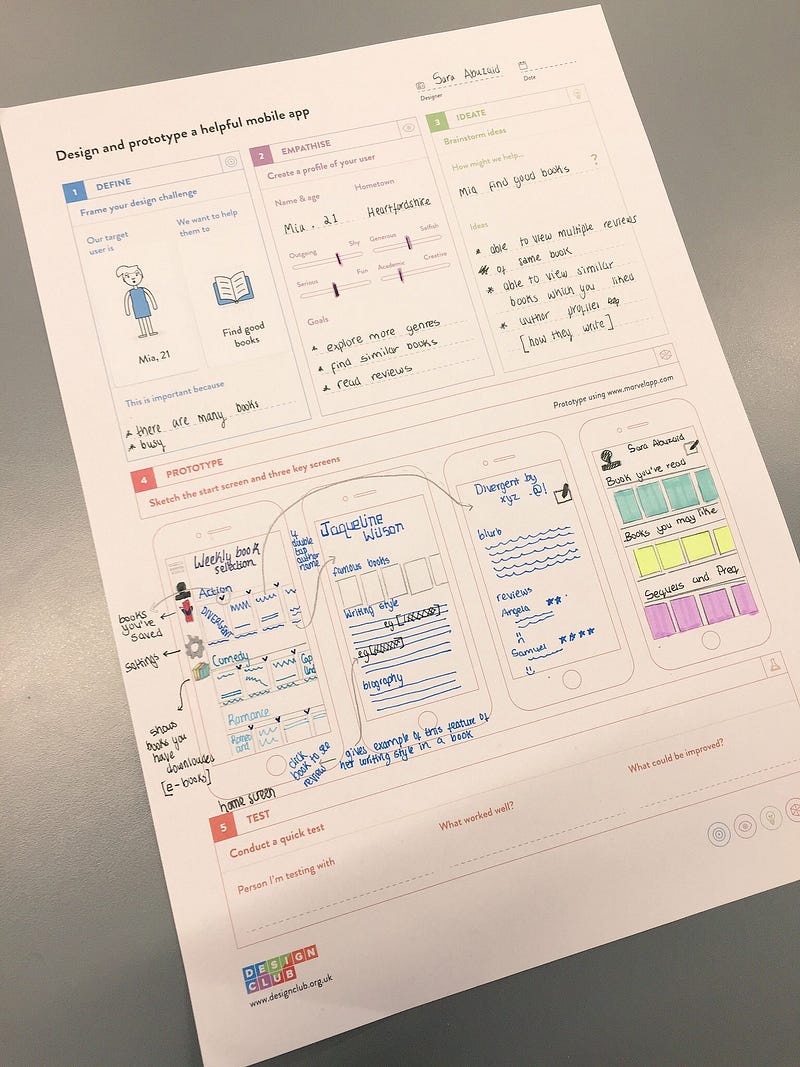 Design and prototype a helpful mobile app
Sara Abuzaid
Designer
Date
1 DEFINE
Frame your design challenge
Our target
user is
We want to help
them to
Mia, 21
Find good
books
This is important because
* there are many books
* busy
2 EMPATHISE
Create a profile of your user
Name & age
Hometown
Mia . 21
Heartfordshire
Outgoing
Shy
Generous
Selfish
Serious
Fun
Academic
Creative
Goals
* explore more genres
* find similar books
* read reviews
3 IDEATE
Brainstorm ideas
How might we help...
Mia find good books
?
Ideas
* able to view multiple reviews
of same book
* able to view similar
books which you liked
* author profiles
[how they write]
4 PROTOTYPE
Prototype using www.marvelapp.com
Sketch the start screen and three key screens
Weekly book
selection
Action
DIVERGENT
Comedy
Romance
Romeo
and
books
you've
saved
settings
shows
books you
have
downloaded
[e-books]
home screen
double
tap
author
name
click
book to see
review
Jaqueline
Wilson
famous books
Writing style
eg
eg
biography
gives example of this feature of
her writing style in a book
Divergent by
xyz
blurb
reviews
Angela
Samuel
Sara Abuzaid
Book you've read
Books you may like
Sequels and Preq
5 TEST
Conduct a quick test
Person I'm testing with
What worked well?
What could be improved?
DESIGN
CLUB
www.designclub.org.uk